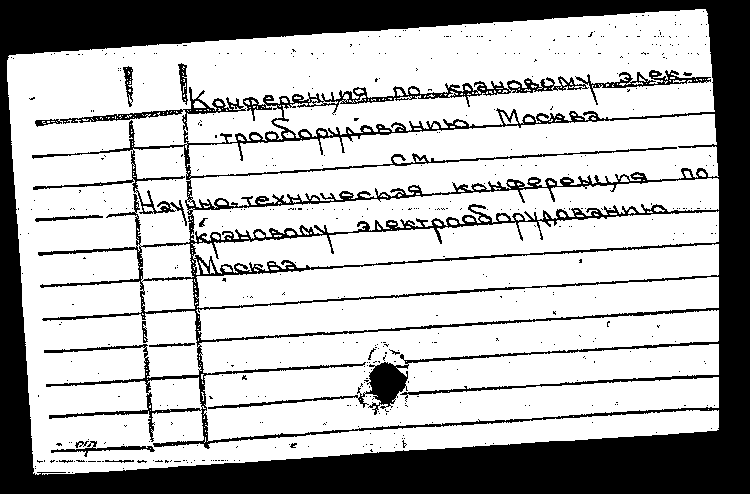 Конференция по крановому элек-
трооборудованию. Москва.
см.
Научно-техническая конференция по
крановому электрооборудованию.
Москва.